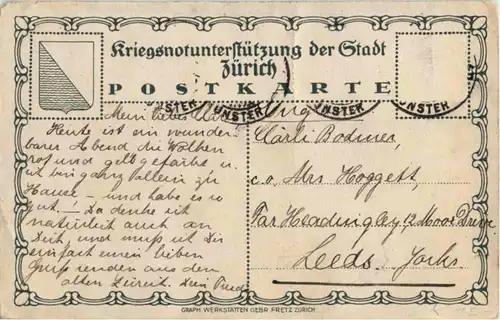 Kriegsnotunterstützung der Stadt
Zürich
POSTKARTE
MÜNSTER
Mein liebes
Heute ist ein wunder-
barer Abend die Wolken
rot und gelb gefärbt u.
ich bin ganz allein zu
Hause – und habe es so
gut! – Da denke ich
natürlich auch an
Dich, und muss ich Dir
einfach einen lieben
Gruss senden aus den
alten Zürich. Dein
Clärli Bodmer,
c.o. Mrs Hoggett,
Far Headingley, 12 Moor Drive
Leeds. Yorks
GRAPH. WERKSTÄTTEN GEBR. FRETZ ZÜRICH